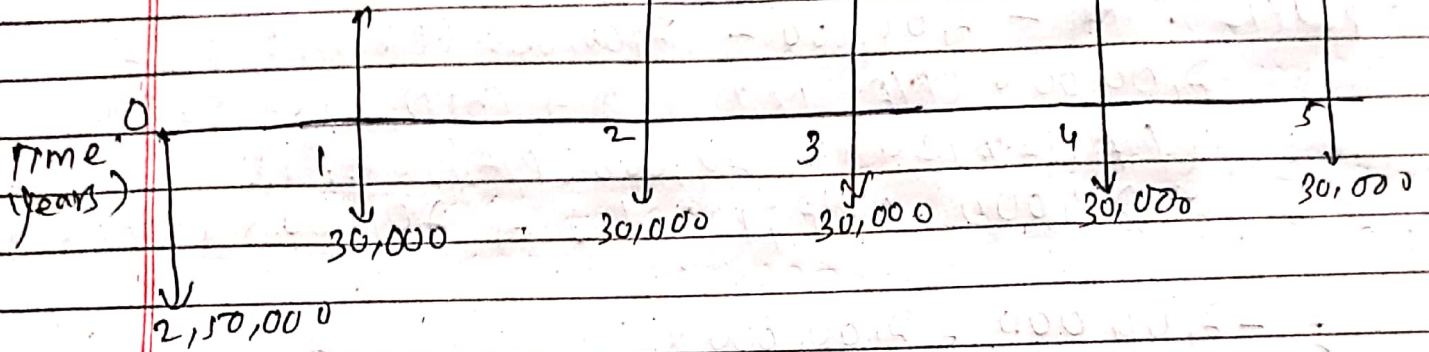 0
Time
(years)
1 2 3 4 5
30,000 30,000 30,000 30,000 30,000
2,50,000